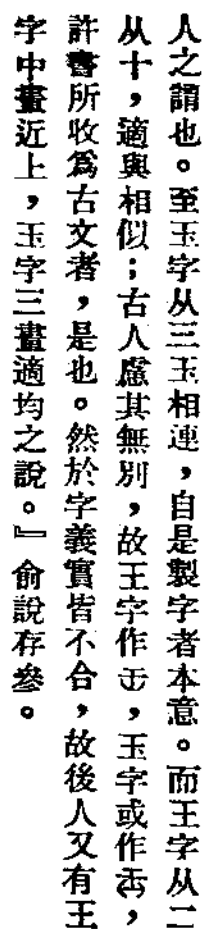 人之謂也。至玉字从三玉相連，自是製字者本意。而王字从二
从十，適與相似；古人慮其無別，故王字作𠙻，玉字或作𤣪，
許書所收爲古文者，是也。然於字義實皆不合，故後人又有王
字中畫近上，玉字三畫適均之說。』俞說存參。